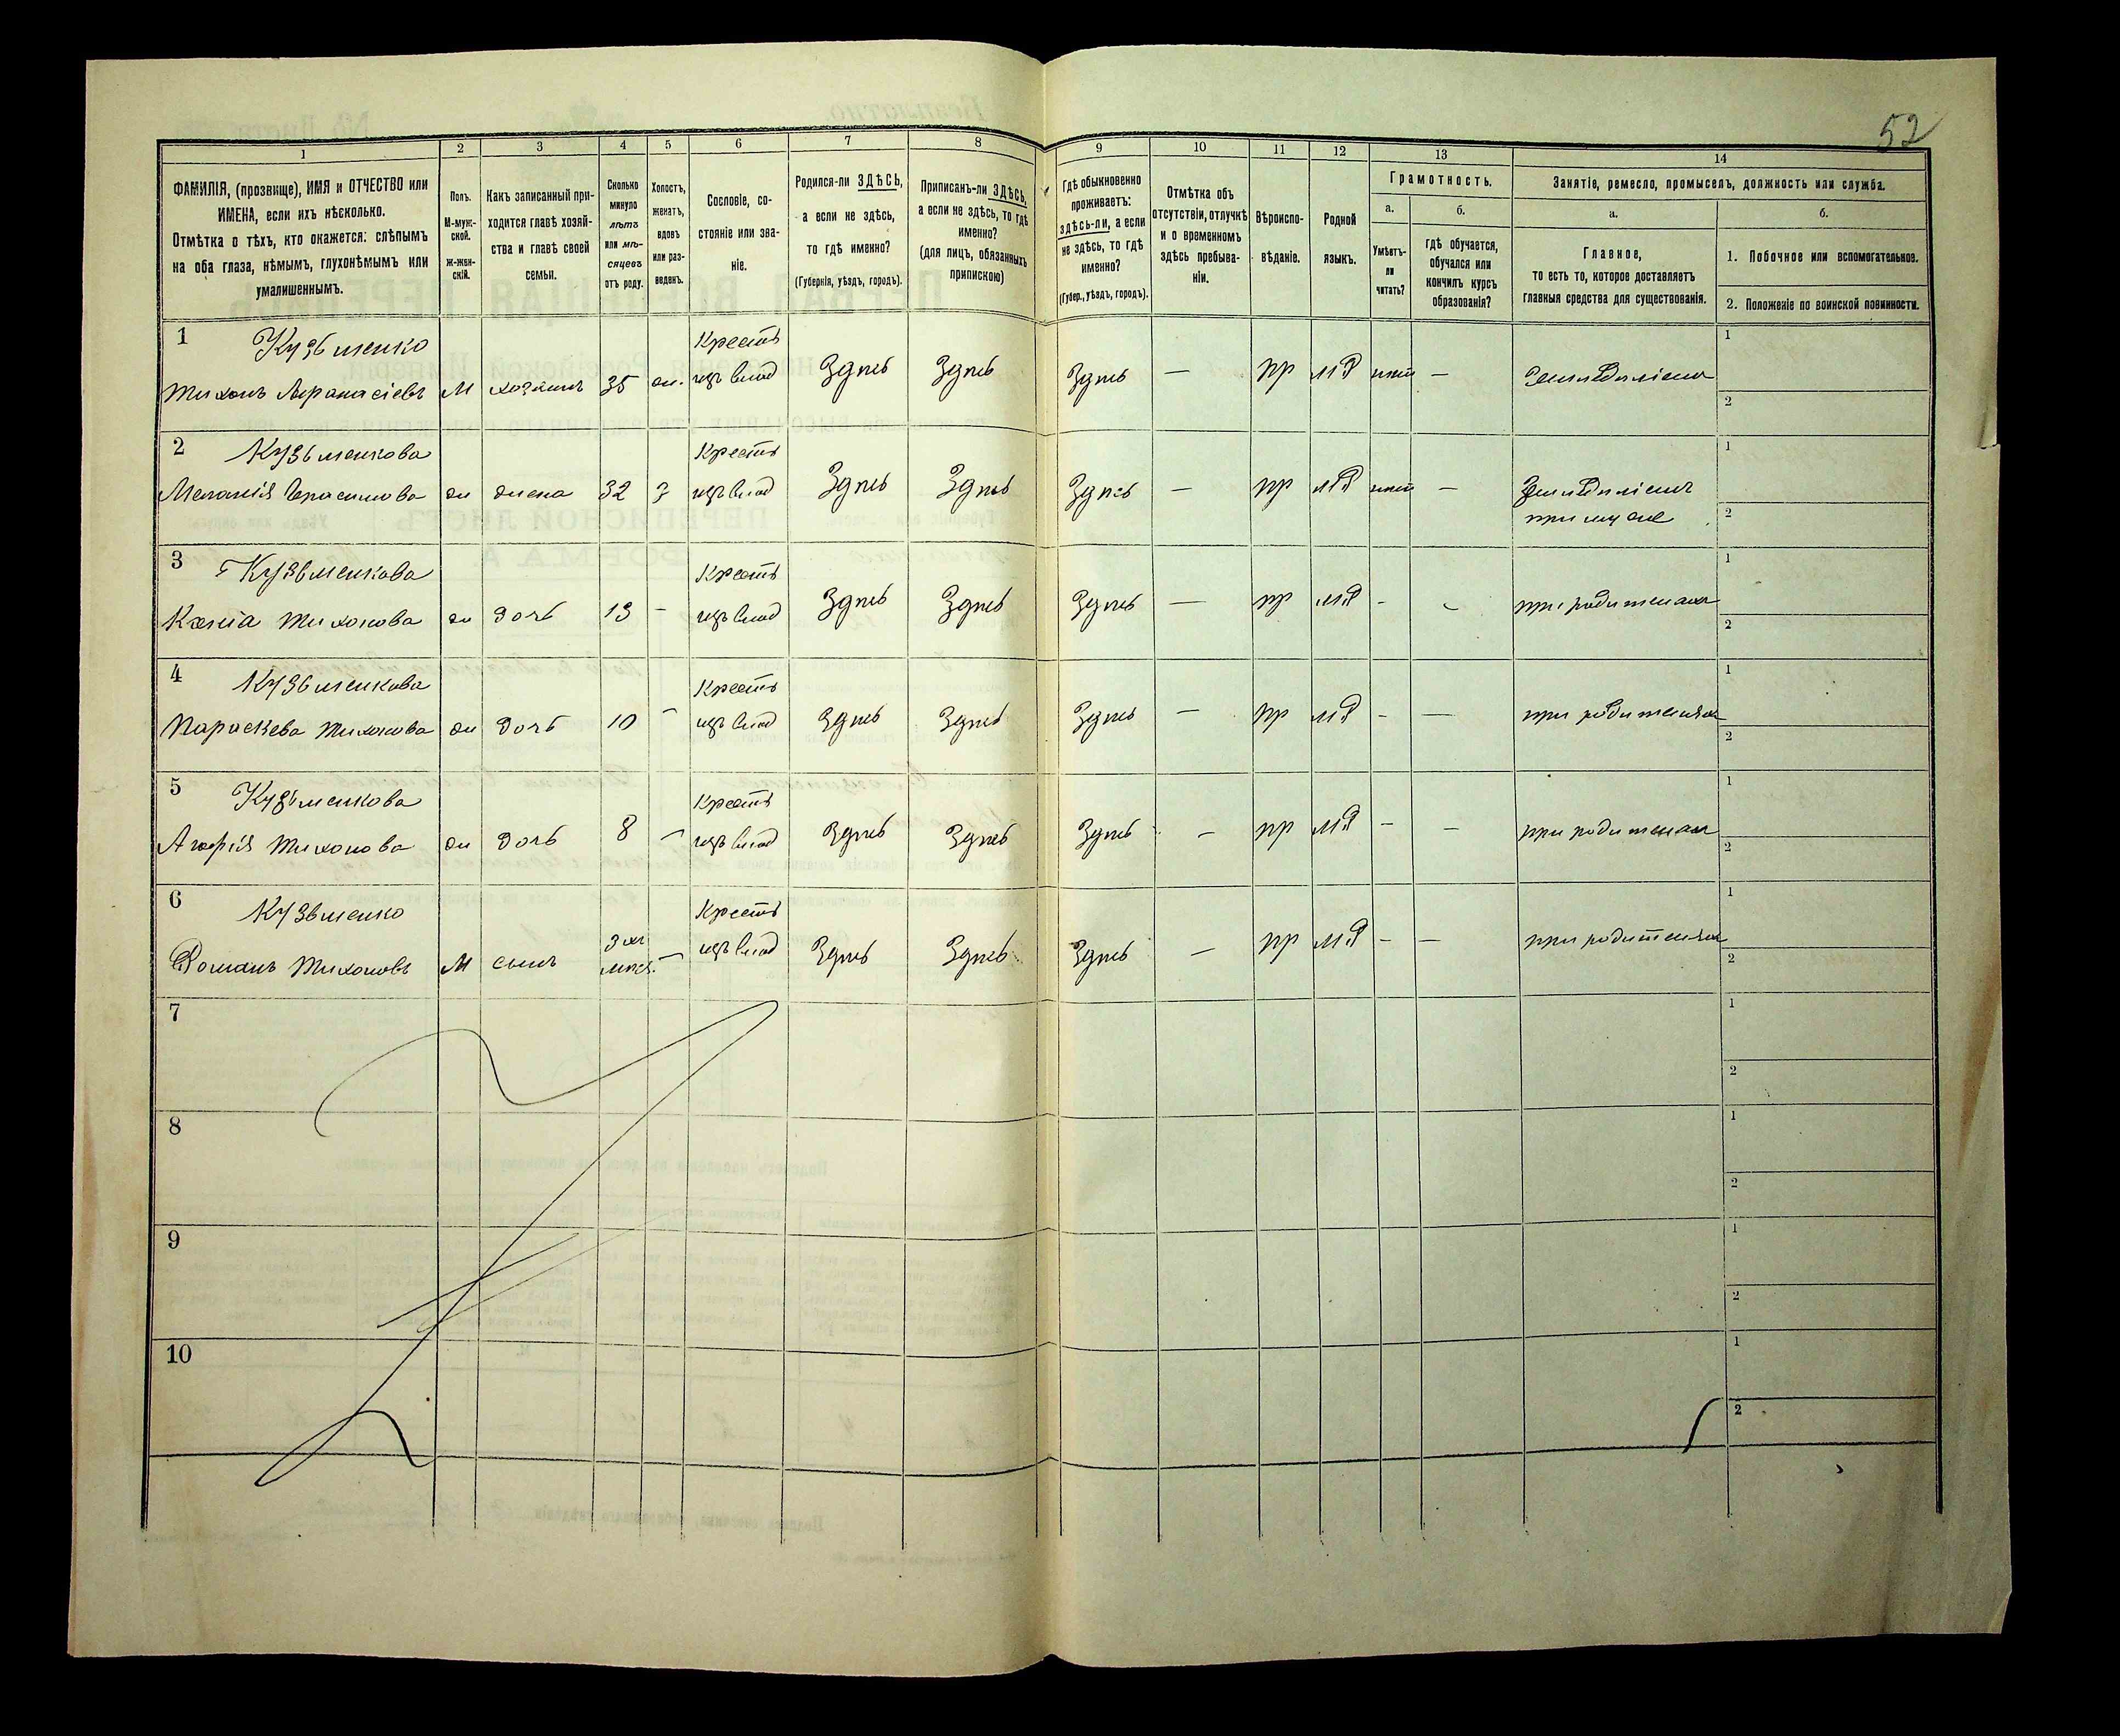 52
1 2 3 4 5 6 7 8 9 10 11 12 13 14
ФАМИЛІЯ, (прозвище), ИМЯ и ОТЧЕСТВО или
ИМЕНА, если ихъ нѣсколько.
Отмѣтка о тѣхъ, кто окажется: слѣпымъ
на оба глаза, нѣмымъ, глухонѣмымъ или
умалишеннымъ.
Полъ.
М-муж-
ской.
Ж-жен-
скій.
Какъ записанный при-
ходится главѣ хозяй-
ства и главѣ своей
семьи.
Сколько
минуло
лѣтъ
или мѣ-
сяцевъ
отъ роду.
Холостъ,
женатъ,
вдовъ
или раз-
веденъ.
Сословіе, со-
стояніе или зва-
ніе.
Родился-ли ЗДѢСЬ,
а если не здѣсь,
то гдѣ именно?
(Губернія, уѣздъ, городъ).
Приписанъ-ли ЗДѢСЬ,
а если не здѣсь, то гдѣ
именно?
(для лицъ, обязанныхъ
припискою)
Гдѣ обыкновенно
проживаетъ:
здѣсь-ли, а если
не здѣсь, то гдѣ
именно?
(Губер., уѣздъ, городъ).
Отмѣтка объ
отсутствіи, отлучкѣ
и о временномъ
здѣсь пребыва-
ніи.
Вѣроиспо-
вѣданіе.
Родной
языкъ.
Грамотность.
а.
Умѣетъ-
ли
читать?
б.
Гдѣ обучается,
обучался или
кончилъ курсъ
образованія?
Занятіе, ремесло, промыселъ, должность или служба.
а.
Главное,
то есть то, которое доставляетъ
главныя средства для существованія.
б.
1. Побочное или вспомогательное.
2. Положеніе по воинской повинности.
1 Кузьменко Крест 1
Тихонъ Афанасіевъ М хозяинъ 35 ж. изъ влад Здѣсь Здѣсь Здѣсь — пр МР нѣт —
2
2 Кузьменкова Крест 1
Меланія Герасимова ж жена 32 З изъ влад Здѣсь Здѣсь Здѣсь — пр МР нѣт —
при муже 2
3 Кузьменкова Крест 1
Ксенія Тихонова ж дочь 13 - изъ влад Здѣсь Здѣсь Здѣсь — пр МР - - при родителях
2
4 Кузьменкова Крест 1
Параскева Тихонова ж дочь 10 - изъ влад Здѣсь Здѣсь Здѣсь — пр МР - — при родителях
2
5 Кузьменкова Крест 1
Агафія Тихонова ж дочь 8 - изъ влад Здѣсь Здѣсь Здѣсь - пр МР - - при родителях
2
6 Кузьменко Крест 1
Романъ Тихоновъ М сынъ 3 хъ мѣсяц. — изъ влад Здѣсь Здѣсь Здѣсь — пр МР - — при родителях
2
7 1
2
8 1
2
9 1
2
10 1
2